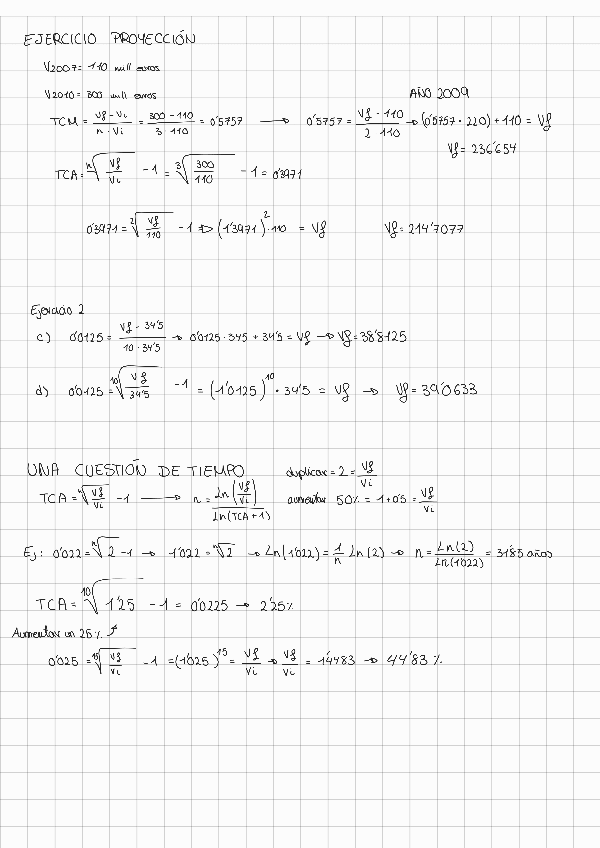 EJERCICIO PROYECCIÓN
V2007 = 110 mill euros
V2010 = 300 mill euros
AÑO 2009
TCM = (Vf - Vi)/(n · Vi) = (300 - 110)/(3 · 110) = 0'5757 → 0'5757 = (Vf - 110)/(2 · 110) → (0'5757 · 220) + 110 = Vf
Vf = 236'654
TCA = ⁿ√(Vf/Vi) - 1 = ³√(300/110) - 1 = 0'3971
0'3971 = ²√(Vf/110) - 1 => (1'3971)² · 110 = Vf Vf = 214'7077
Ejercicio 2
c) 0'0125 = (Vf - 34'5)/(10 · 34'5) → 0'0125 · 345 + 34'5 = Vf → Vf = 38'8125
d) 0'0125 = ¹⁰√(Vf/34'5) - 1 = (1'0125)¹⁰ · 34'5 = Vf → Vf = 39'0633
UNA CUESTIÓN DE TIEMPO duplicar = 2 = Vf/Vi
TCA = ⁿ√(Vf/Vi) - 1 → n = Ln(Vf/Vi)/Ln(TCA + 1) aumentar 50% = 1 + 0'5 = Vf/Vi
Ej: 0'022 = ⁿ√2 - 1 → 1'022 = ⁿ√2 → Ln(1'022) = 1/n Ln(2) → n = Ln(2)/Ln(1'022) = 31'85 años
TCA = ¹⁰√1'25 - 1 = 0'0225 → 2'25%
Aumentar un 25% ↗
0'025 = ¹⁵√(Vf/Vi) - 1 = (1'025)¹⁵ = Vf/Vi → Vf/Vi = 1'4483 → 44'83 %